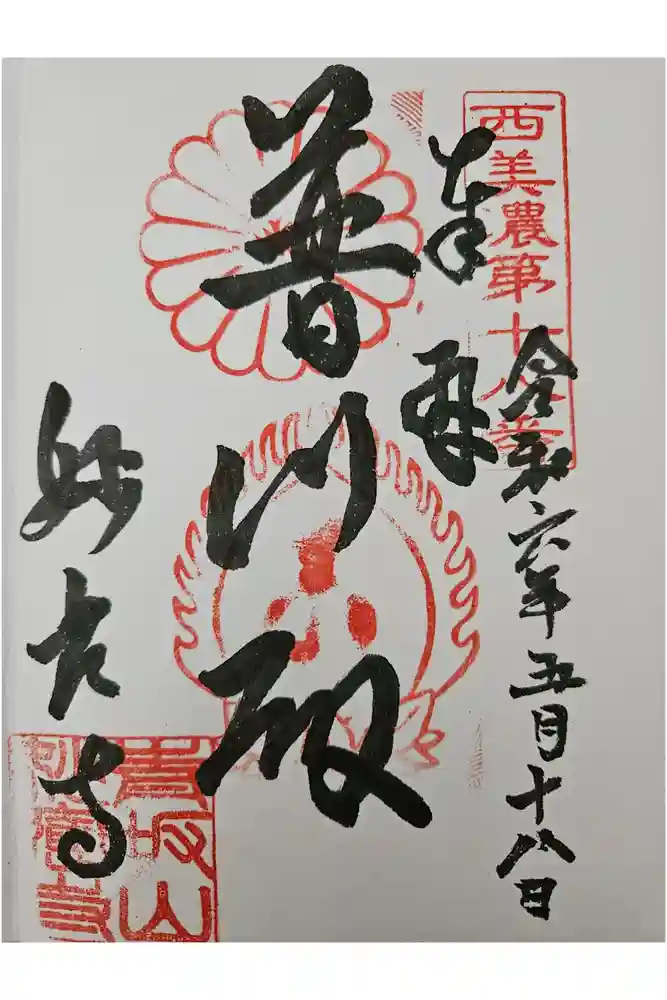 西美農第十八番
奉拝
令和六年五月十八日
普門殿
妙応寺
青坂山
妙應寺